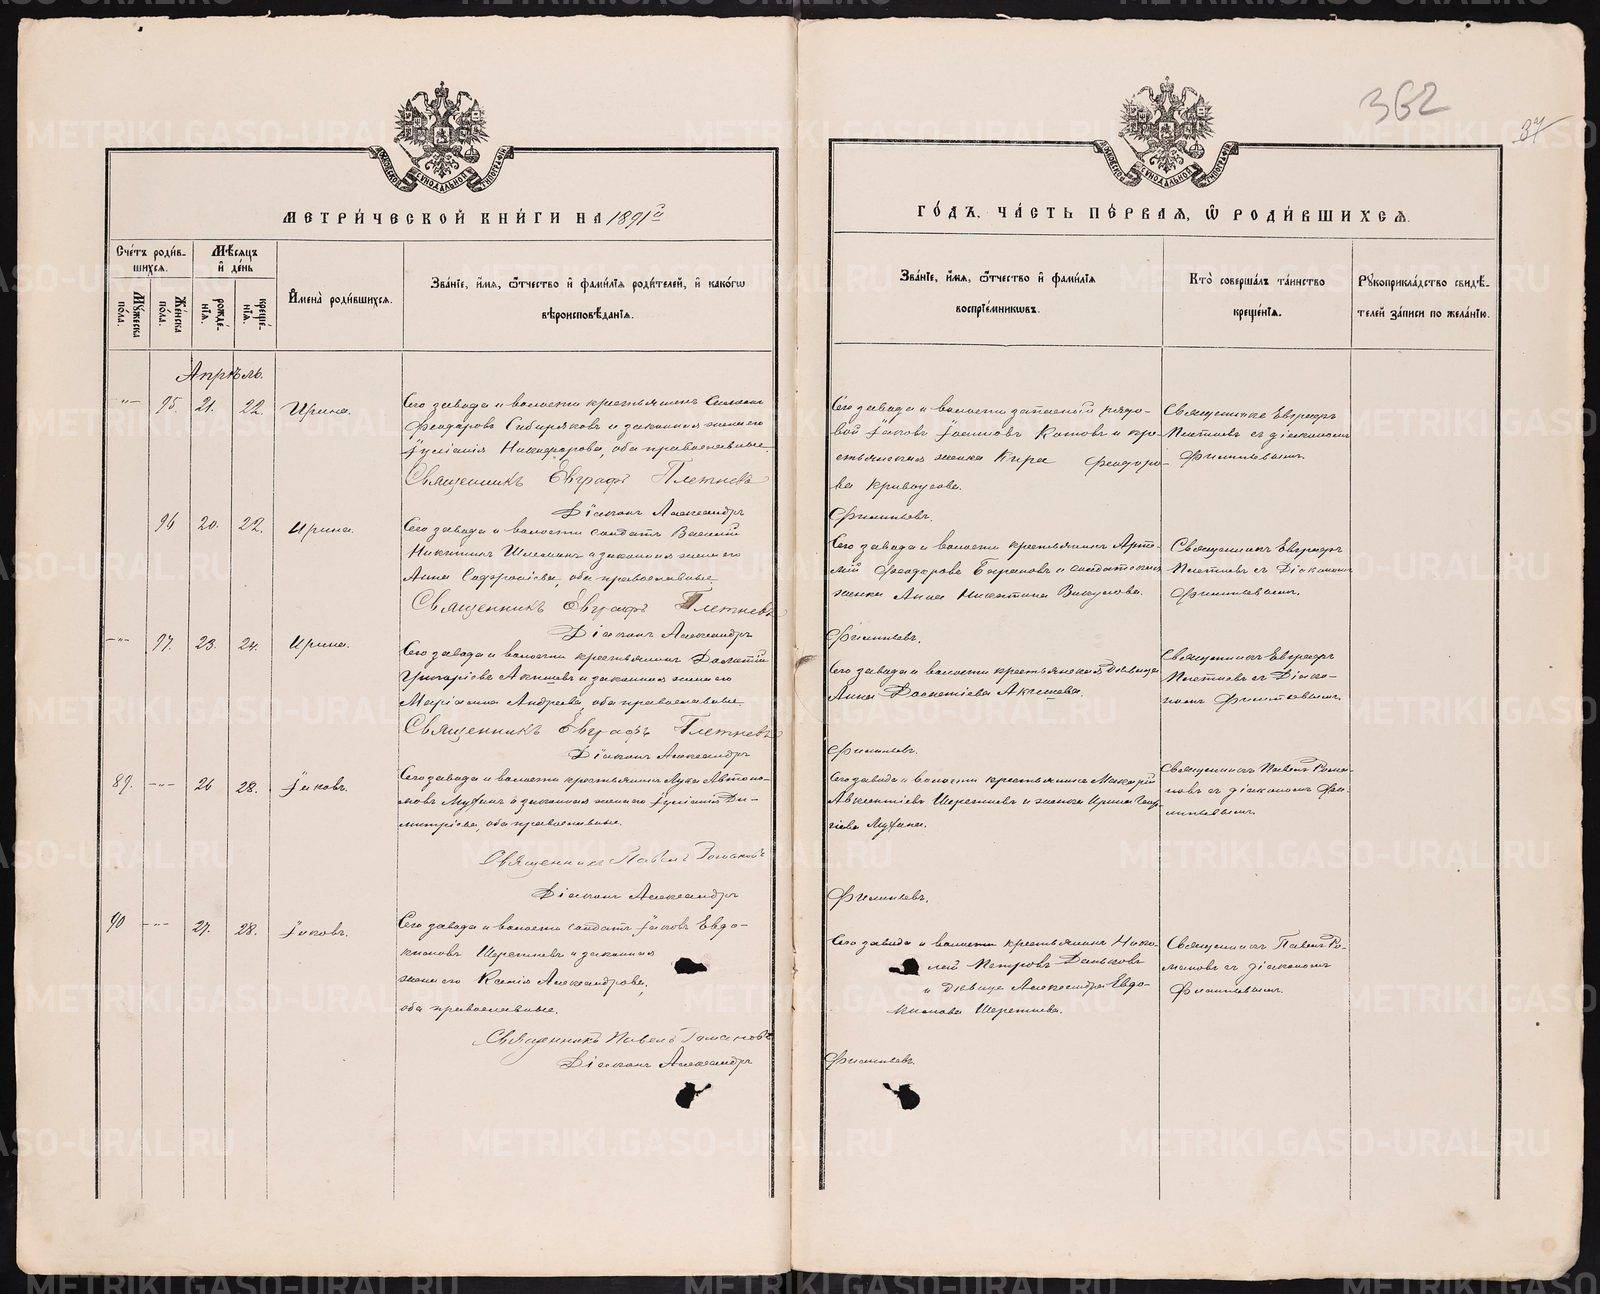 362
37
МЕТРИ́ЧЕСКОЙ КНИ́ГИ НА 1891 й
ГО́ДЪ, ЧА́СТЬ ПЕ́РВАЯ, Ѿ РОДИ́ВШИХСЯ.
Сче́тъ роди́в-
шихся.
Мѣсяцъ
и҆ де́нь
И҆мена̀ роди́вшихся.
Зва́нїе, и҆́мя, ѻ҆́тчество и҆ фами́лїя роди́телей, и҆ како́гѡ
вѣроисповѣ́данїя.
Мꙋ́жеска
по́ла.
Же́нска
по́ла.
рожде́-
нїя.
креще́-
нїя.
Зва́нїе, и҆́мя, ѻ҆́тчество и҆ фами́лїя
воспрїе́мникѡвъ.
Кто̀ соверша́лъ та́инство
креще́нїя.
Рꙋкоприкла́дство свидѣ́-
телей за́писи по жела́нїю.
Апрѣль.
-"- 95. 21. 22. Ирина.
Сего завода и волости крестьянинъ
Феодоровъ Сибиряковъ и законная жена его
Іуліанія Никифорова, оба православные.
Священникъ Евграфъ Плетневъ
Діаконъ Александръ
Сего завода и волости запасной рядо-
вой Іаковъ Котовъ и кре-
стьянская жена Кира Феодоро-
ва Кривоусова.
Филипьевъ.
Священникъ Евграфъ
Плетневъ съ діакономъ
Филипьевымъ.
96 20. 22. Ирина.
Сего завода и волости солдатъ Василій
Никитинъ и законная жена его
Анна Софроніева, оба православные.
Священникъ Евграфъ Плетневъ
Діаконъ Александръ
Сего завода и волости крестьянинъ Арте-
мій Феодоровъ и солдатская
женка Анна Никитина
Филипьевъ.
Священникъ Евграфъ
Плетневъ съ Діакономъ
Филипьевымъ.
-"- 97. 23. 24. Ирина.
Сего завода и волости крестьянинъ
Григоріевъ Акишевъ и законная жена его
Маріанна Андреева, оба православные.
Священникъ Евграфъ Плетневъ
Діаконъ Александръ
Сего завода и волости крестьянская дѣвица
Анна Акишева.
Филипьевъ.
Священникъ Евграфъ
Плетневъ съ Діако-
номъ Филипьевымъ.
89. -"- 26 28. Іаковъ.
Сего завода и волости крестьянинъ Лука Автоно-
мовъ и законная жена его Іуліанія Ди-
митріева, оба православные.
Священникъ Павелъ
Діаконъ Александръ
Сего завода и волости крестьянинъ Макарій
Авксентіевъ Шерешневъ и женка Ирина Геор-
гіева
Филипьевъ.
Священникъ Павелъ Рома-
новъ съ діакономъ Фи-
липьевымъ.
90 -"- 27. 28. Іаковъ.
Сего завода и волости солдатъ Іаковъ Евдо-
кимовъ Шерешневъ и законная
жена его Ксенія Александрова,
оба православные.
Священникъ Павелъ Романовъ
Діаконъ Александръ
Сего завода и волости крестьянинъ Нико-
лай Петровъ Даньковъ
и дѣвица Александра Евдо-
кимова Шерешнева.
Филипьевъ.
Священникъ Павелъ Ро-
мановъ съ діакономъ
Филипьевымъ.